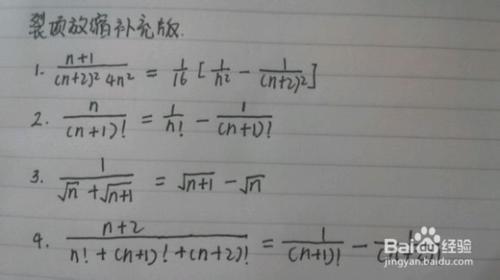 裂项放缩补充版.
1. \frac{n+1}{(n+2)^2 4n^2} = \frac{1}{16} [\frac{1}{n^2} - \frac{1}{(n+2)^2}]
2. \frac{n}{(n+1)!} = \frac{1}{n!} - \frac{1}{(n+1)!}
3. \frac{1}{\sqrt{n} + \sqrt{n+1}} = \sqrt{n+1} - \sqrt{n}
4. \frac{n+2}{n! + (n+1)! + (n+2)!} = \frac{1}{(n+1)!} -
Baidu 经验
jingyan.baidu.com